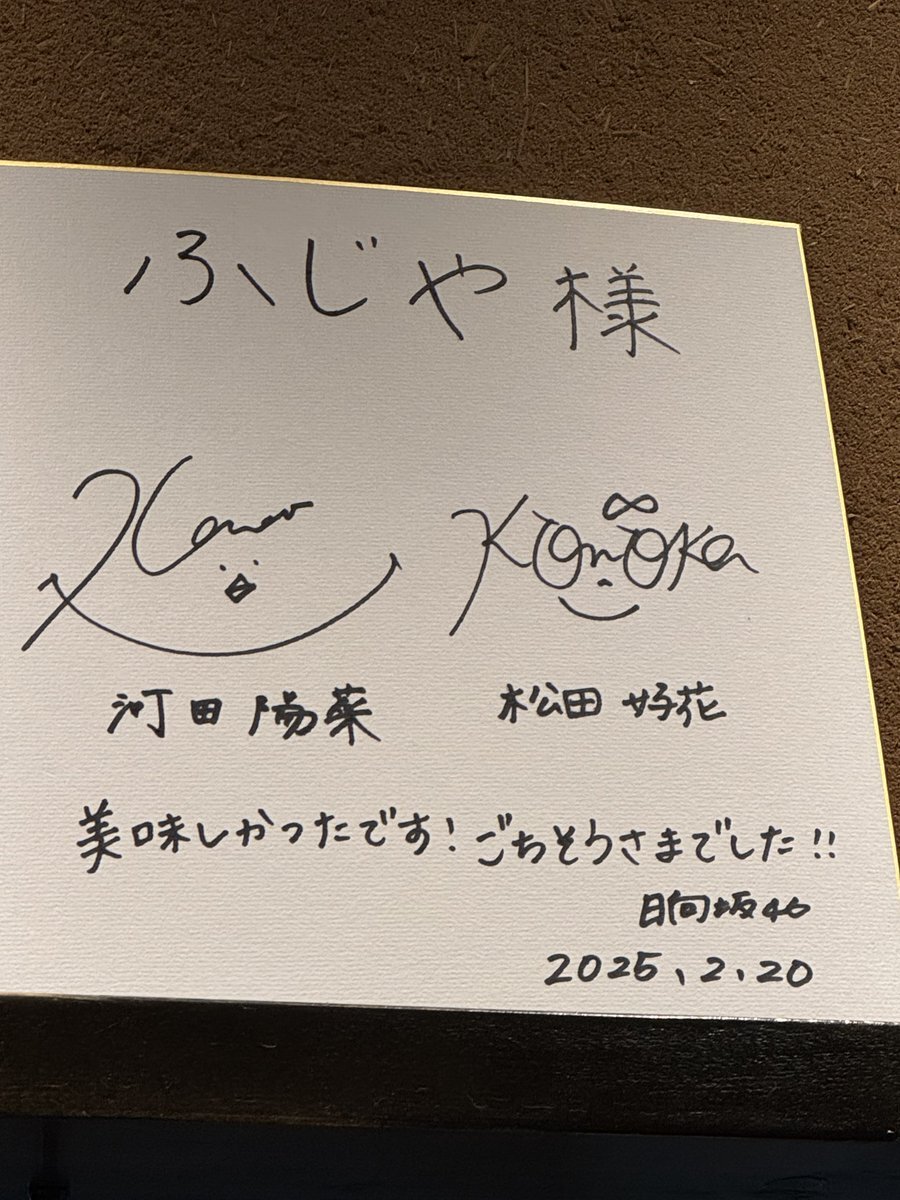 ふじや様
Kanao Konoka
河田 陽菜 松田 好花
美味しかったです! ごちそうさまでした!!
日向坂46
2025、2、20